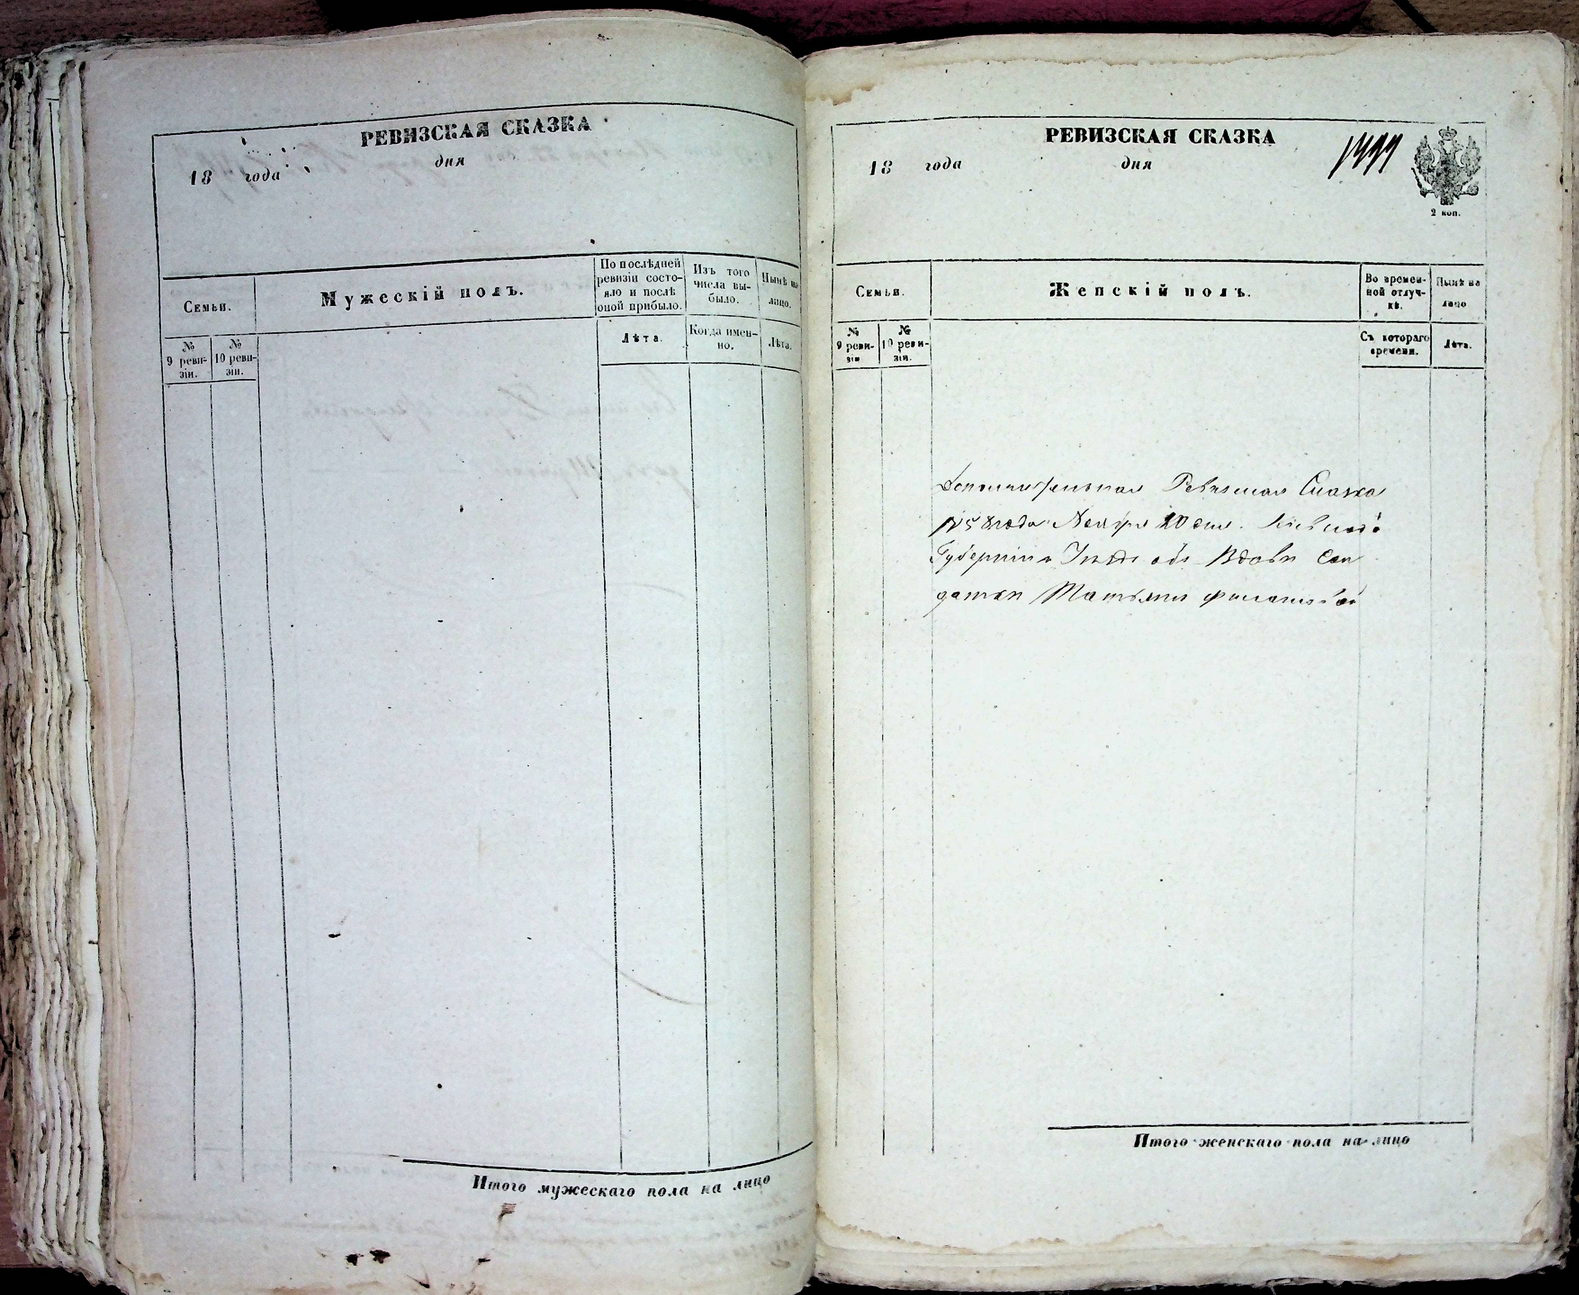 РЕВИЗСКАЯ СКАЗКА
18 года дня
Семьи.
Мужескій полъ.
По послѣдней ревизіи состояло и послѣ оной прибыло.
Изъ того числа выбыло.
Нынѣ на лицо.
№ 9 ревизіи.
№ 10 ревизіи.
Лѣта.
Когда именно.
Лѣта.
Итого мужескаго пола на лицо
РЕВИЗСКАЯ СКАЗКА
18 года дня
2 коп.
Семьи.
Женскій полъ.
Во временной отлучкѣ.
Нынѣ на лицо
№ 9 ревизіи
№ 10 ревизіи.
Съ котораго времени.
Лѣта.
Дополнительная Ревизская Сказка
1858 года Ноября 20 дня. Кіевской
Губерніи объ Вдовѣ Сол
даткѣ Татьянѣ
Итого женскаго пола на лицо